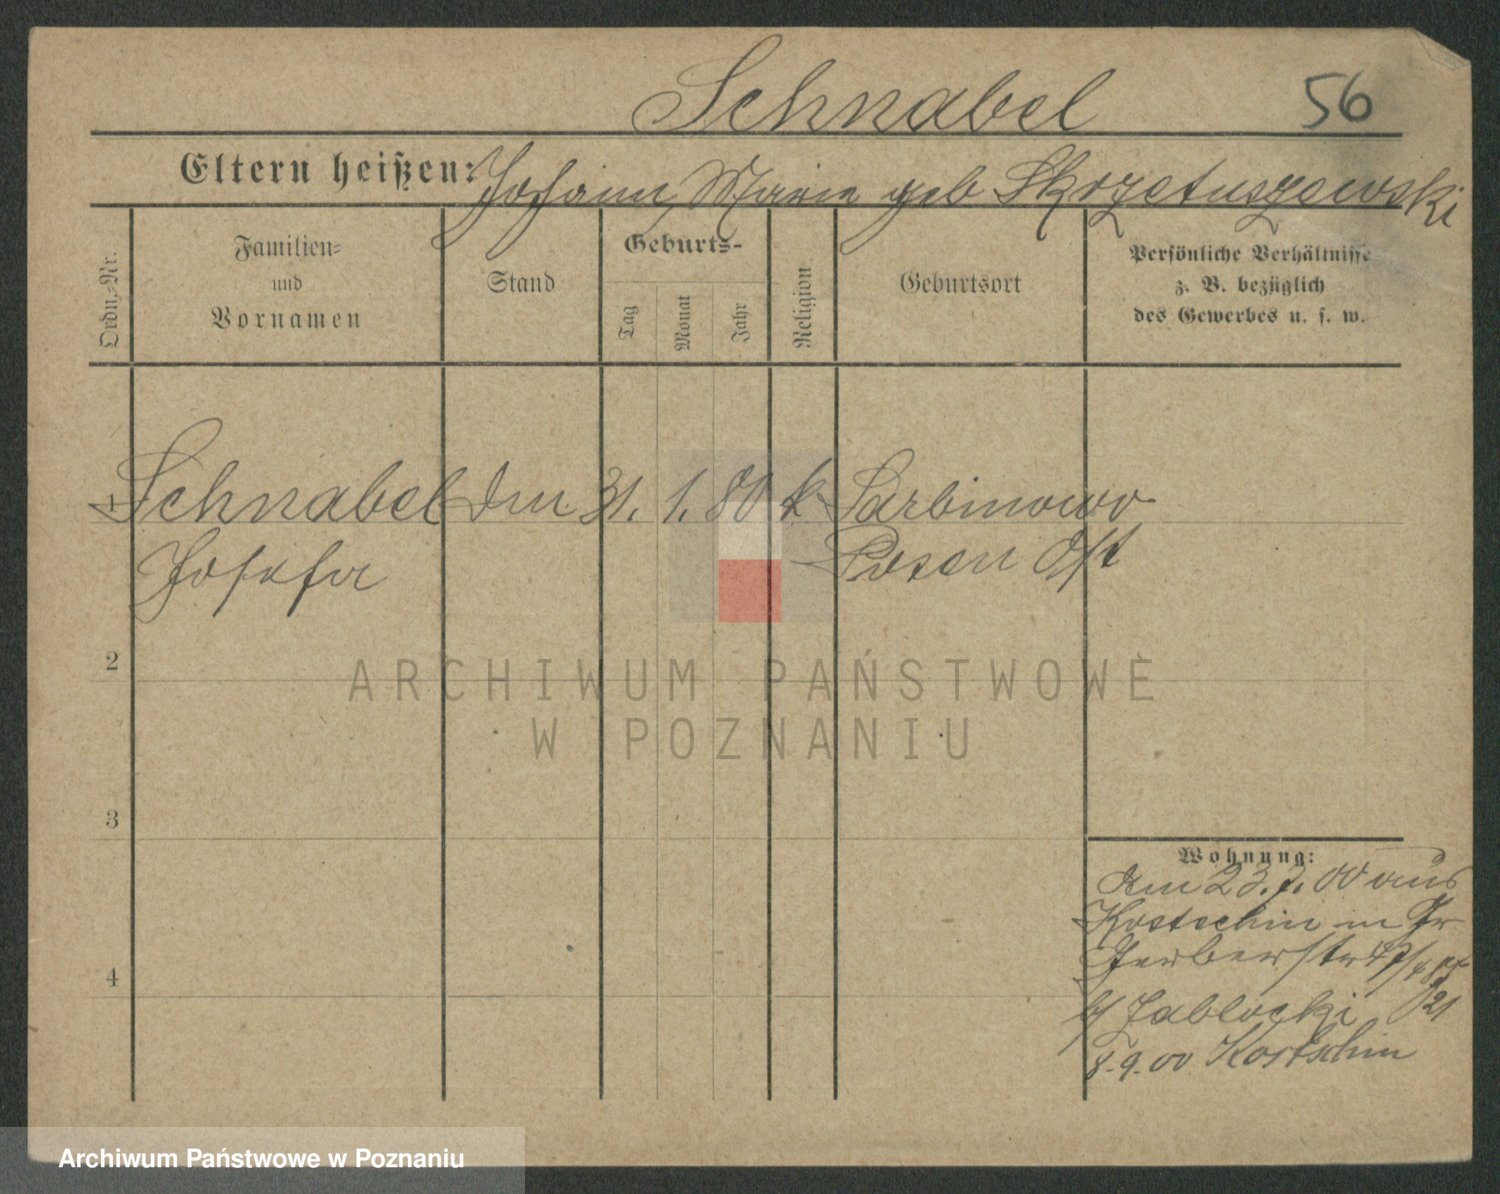 Schnabel
56
Eltern heißen: Johann, Marie geb Skrzetuszewski
Ordn.-Nr.
Familien-
und
Vornamen
Stand
Geburts-
Tag
Monat
Jahr
Religion
Geburtsort
Persönliche Verhältnisse
z. B. bezüglich
des Gewerbes u. s. w.
1 Schnabel 31. 1. 80 k Sarbinowo
Josefa Posen Ost
2
ARCHIWUM PAŃSTWOWE
W POZNANIU
3
Wohnung:
Am 23. 7. 00 aus
Kostschin in Gr
Gerberstr 47/48
b/ Jablocki 21
4
8.9.00 Kostschin
Archiwum Państwowe w Poznaniu